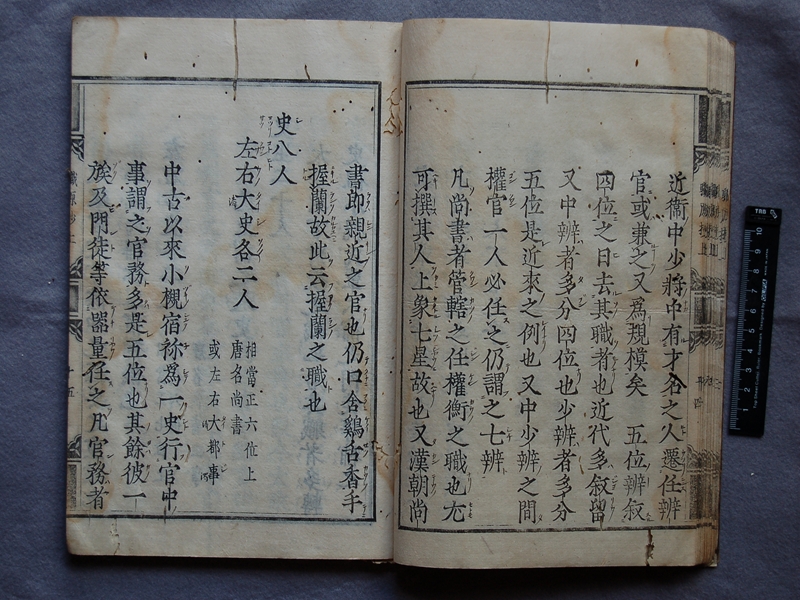 近衞中少將中有才名之人遷任辨
官或兼之又爲規模矣　五位辨叙
四位之日去其職者也近代多叙留
又中辨者多分四位也少辨者多分
五位是近來之例也又中少辨之間
權官一人必任之仍謂之七辨
凡尚書者管轄之任權衡之職也尤
可撰其人上象七星故也又漢朝尚
書郎親近之官也仍口含鷄舌香手
握蘭故此云握蘭之職也
史八人
左右大史各二人
相當正六位上
唐名尚書
或左右大都事
中古以來小槻宿祢爲一史行官中
事謂之官務多是五位也其餘彼一
族及門徒等依器量任之凡官務者